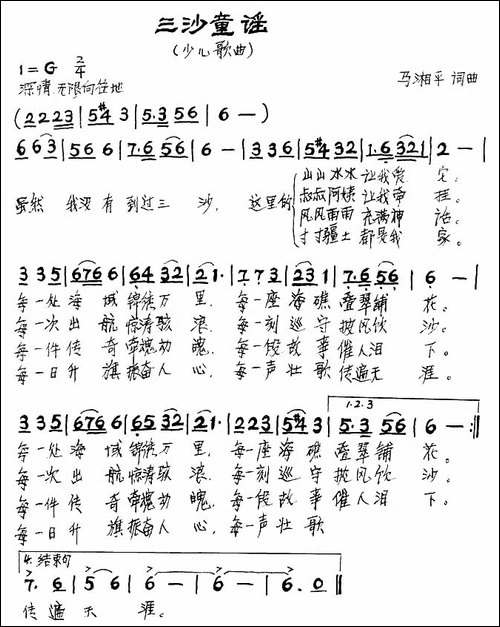 三沙童谣
(少儿歌曲)
1=G 2/4
深情 无限向往地
马湘平 词曲
(2223|5#4 3|5·3 56|6—)
663|56 6|7·656|6—|336|5#4 32|1·6 321|2—|
虽然 我没有到过三 沙, 这里的
山山水水 让我爱 恋。
叔叔阿姨 让我牵 挂。
风风雨雨 充满神 话。
寸寸疆土 都是我 家。
335|676 6|64 32|21·|7·73|23 1|7·6 56|6—|
每一处海 域锦绣万 里, 每一座海 礁叠翠铺 花。
每一次出 航惊涛骇 浪, 每一刻巡 守披风饮 沙。
每一件传 奇牵魂动 魄, 每一段故 事催人泪 下。
每一日升 旗振奋人 心, 每一声壮 歌传遍天 涯。
335|676 6|65 32|21·|223|5#4 3|5·3 56|6—:||
1.2.3
每一处海 域锦绣万 里, 每一座海 礁叠翠铺 花。
每一次出 航惊涛骇 浪, 每一刻巡 守披风饮 沙。
每一件传 奇牵魂动 魄, 每一段故 事催人泪 下。
每一日升 旗振奋人 心, 每一声壮 歌
4.结束句
7·6|5 6|6—|6—|6·0||
传遍天 涯。